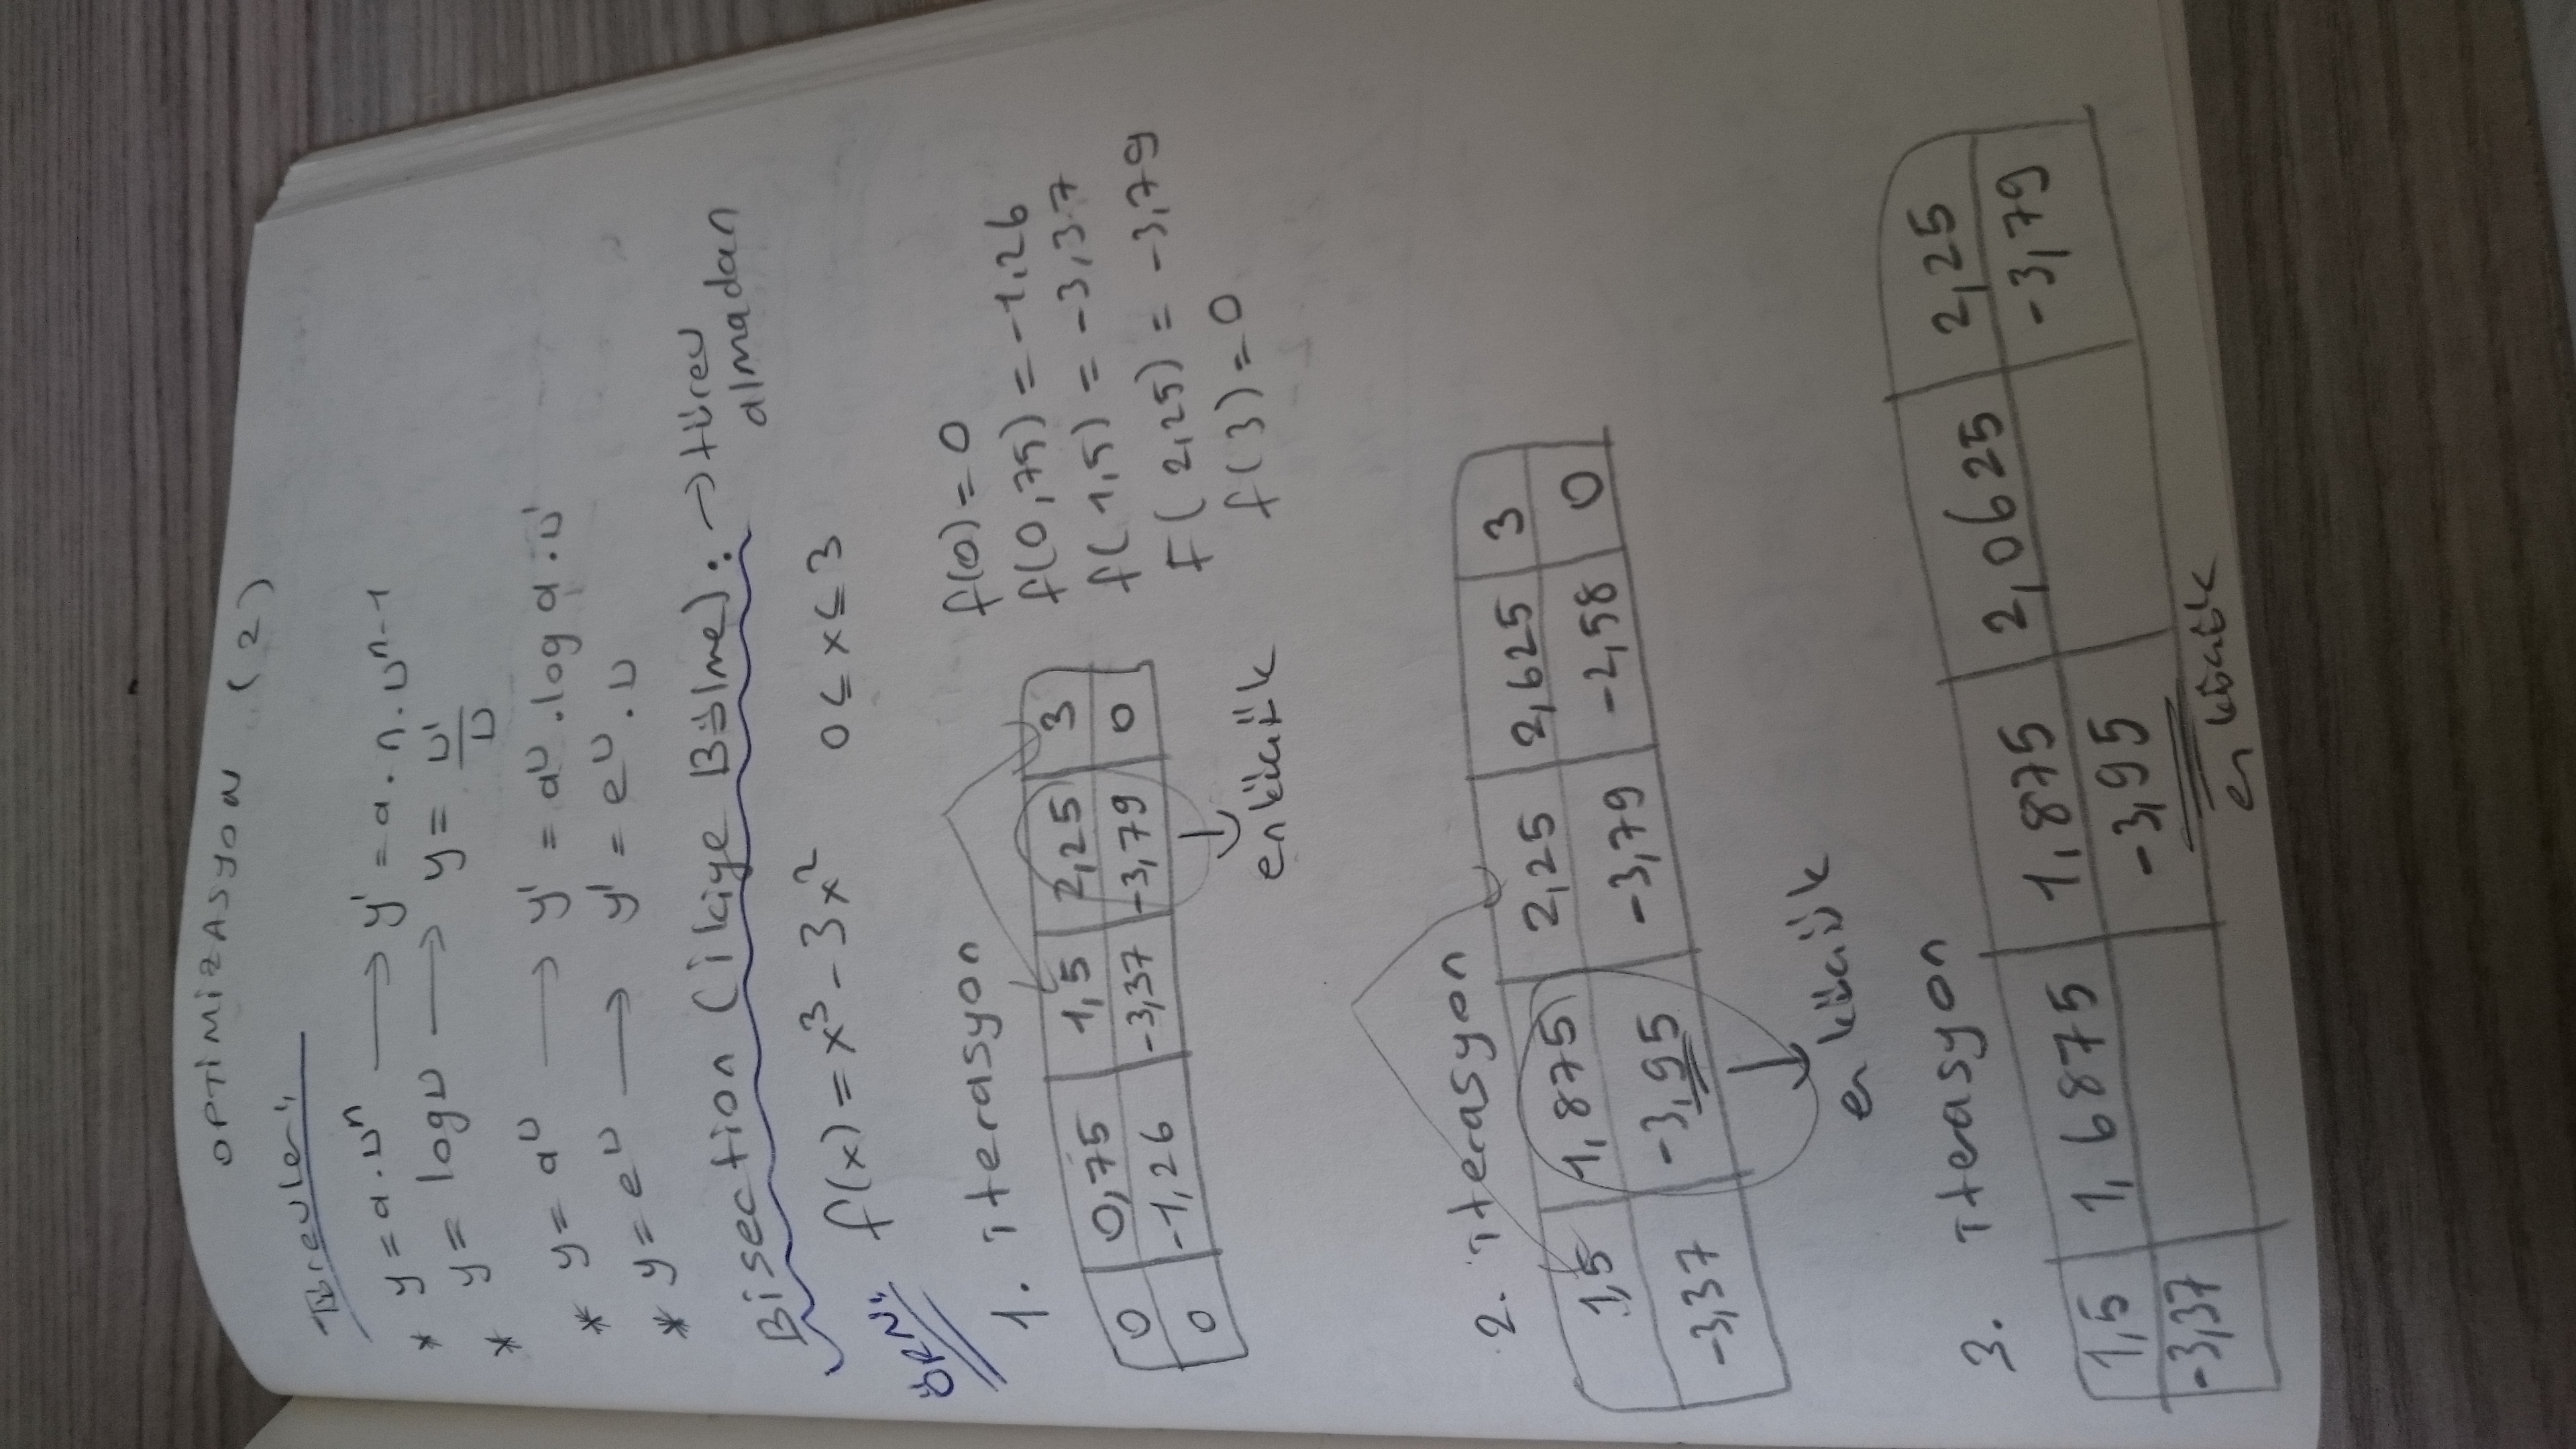 OPTİMİZASYON (2)
Türevler;
* y = a . u^n → y' = a . n . u^n-1
* y = log u → y = u'/u
* y = a^u → y' = a^u . log a . u'
* y = e^u → y' = e^u . u
Bisection (ikiye Bölme) : → türev almadan
ÖRN; f(x) = x³ - 3x² 0 ≤ x ≤ 3
1. iterasyon
0 0,75 1,5 2,25 3
0 -1,26 -3,37 -3,79 0
en küçük
f(0) = 0
f(0,75) = -1,26
f(1,5) = -3,37
F(2,25) = -3,79
f(3) = 0
2. iterasyon
1,5 1,875 2,25 2,625 3
-3,37 -3,95 -3,79 -2,58 0
en küçük
3. iterasyon
1,5 1,6875 1,875 2,0625 2,25
-3,37 -3,95 -3,79
en küçük